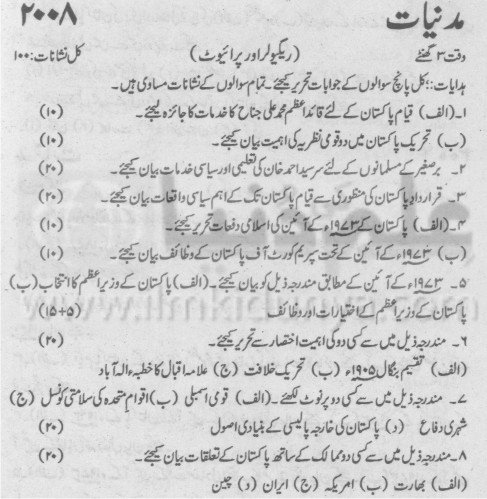 مدنیات ۲۰۰۸
وقت ۳ گھنٹے (ریگولر اور پرائیوٹ) کل نشانات: ۱۰۰
ہدایات:: کل پانچ سوالوں کے جوابات تحریر کیجئے۔ تمام سوالوں کے نشانات مساوی ہیں۔
۱۔ (الف) قیام پاکستان کے لئے قائد اعظم محمد علی جناح کا خدمات کا جائزہ لیجئے۔ (۱۰)
(ب) تحریک پاکستان میں دو قومی نظریہ کی اہمیت بیان کیجئے۔ (۱۰)
۲۔ برصغیر کے مسلمانوں کے لئے سرسید احمد خان کی تعلیمی اور سیاسی خدمات بیان کیجئے۔ (۲۰)
۳۔ قرارداد پاکستان کی منظوری سے قیام پاکستان تک کے اہم سیاسی واقعات بیان کیجئے۔ (۲۰)
۴۔ (الف) پاکستان کے ۱۹۷۳ء کے آئین کی اسلامی دفعات تحریر کیجئے۔ (۱۰)
(ب) ۱۹۷۳ء کے آئین کے تحت سپریم کورٹ آف پاکستان کے وظائف بیان کیجئے۔ (۱۰)
۵۔ ۱۹۷۳ء کے آئین کے مطابق مندرجہ ذیل کو بیان کیجئے۔ (الف) پاکستان کے وزیر اعظم کا انتخاب (ب)
پاکستان کے وزیر اعظم کے اختیارات اور وظائف (۱۵+۵)
۶۔ مندرجہ ذیل میں سے کسی دو کی اہمیت اختصار سے تحریر کیجئے۔ (۲۰)
(الف) تقسیم بنگال ۱۹۰۵ء (ب) تحریک خلافت (ج) علامہ اقبال کا خطبہ الہ آباد
۷۔ مندرجہ ذیل میں سے کسی دو پر نوٹ لکھئے۔ (الف) قومی اسمبلی (ب) اقوام متحدہ کی سلامتی کونسل (ج)
شہری دفاع (د) پاکستان کی خارجہ پالیسی کے بنیادی اصول (۲۰)
۸۔ مندرجہ ذیل میں سے کسی دو ممالک کے ساتھ پاکستان کے تعلقات بیان کیجئے۔ (۲۰)
(الف) بھارت (ب) امریکہ (ج) ایران (د) چین